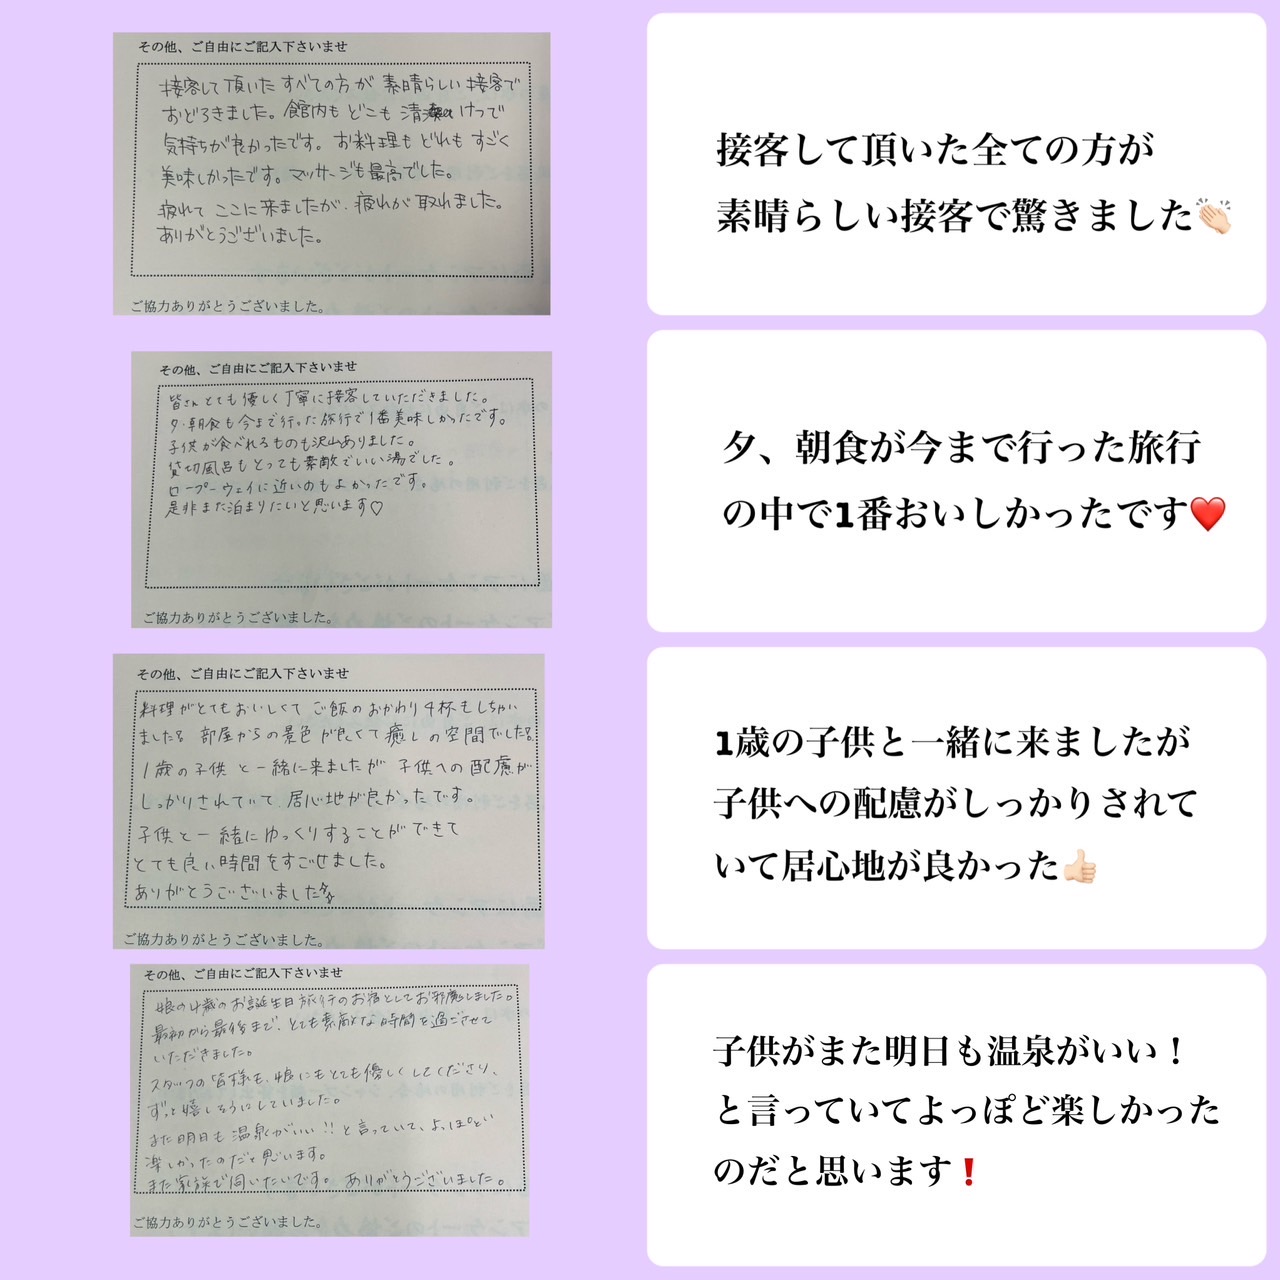 その他、ご自由にご記入下さいませ
接客して頂いた すべての方が 素晴らしい接客で
おどろきました。館内も どこも 清潔 けつで
気持ちが良かったです。お料理も どれも すごく
美味しかったです。マッサージも最高でした。
疲れて ここに来ましたが、疲れが 取れました。
ありがとうございました。
ご協力ありがとうございました。
接客して頂いた全ての方が
素晴らしい接客で驚きました👏🏻
その他、ご自由にご記入下さいませ
皆さんとても優しく丁寧に接客していただきました。
夕・朝食も今まで行った旅行で1番美味しかったです。
子供が食べれるものも沢山ありました。
貸切風呂もとっても素敵でいい湯でした。
ロープーウェイに近いのもよかったです。
是非また泊まりたいと思います♡
ご協力ありがとうございました。
夕、朝食が今まで行った旅行
の中で1番おいしかったです❤️
その他、ご自由にご記入下さいませ
料理がとてもおいしくて ご飯のおかわり4杯もしちゃい
ました 部屋からの景色が良くて癒しの空間でした
1歳の子供と一緒に来ましたが 子供への配慮が
しっかりされていて 居心地が良かったです。
子供と一緒にゆっくりすることができて
とても良い時間をすごせました。
ありがとうございました
ご協力ありがとうございました。
1歳の子供と一緒に来ましたが
子供への配慮がしっかりされて
いて居心地が良かった👍🏻
その他、ご自由にご記入下さいませ
娘の4歳のお誕生日旅行のお宿としてお邪魔しました。
最初から最後まで、とても素敵な時間を過ごさせて
いただきました。
スタッフの皆様も、娘にもとても優しくしてくださり、
ずっと嬉しそうにしていました。
また明日も温泉がいい!!と言っていて、よっぽど
楽しかったのだと思います。
また家族で伺いたいです。 ありがとうございました。
ご協力ありがとうございました。
子供がまた明日も温泉がいい！
と言っていてよっぽど楽しかった
のだと思います❗